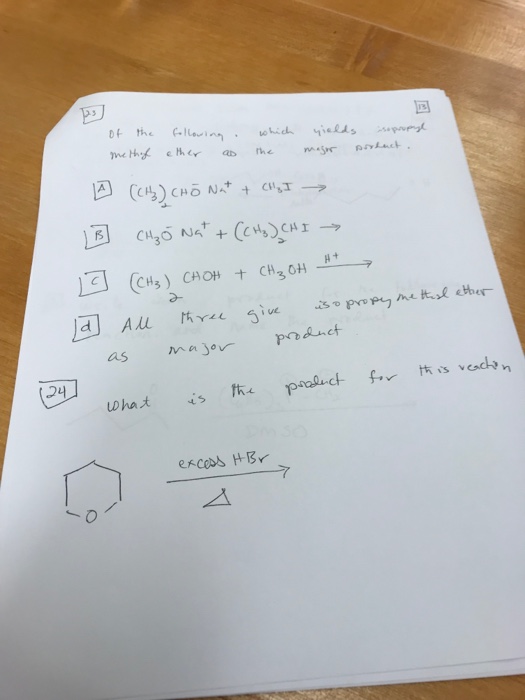 23
13
Of the following. which yields isopropyl
methyl ether as the major product.
A (CH3)2 CHŌ Na+ + CH3I →
B CH3Ō Na+ + (CH3)2CHI →
C (CH3)2 CHOH + CH3OH H+ →
d All three give isopropyl methyl ether
as major product
24 What is the product for this reaction
excess HBr
Δ
O